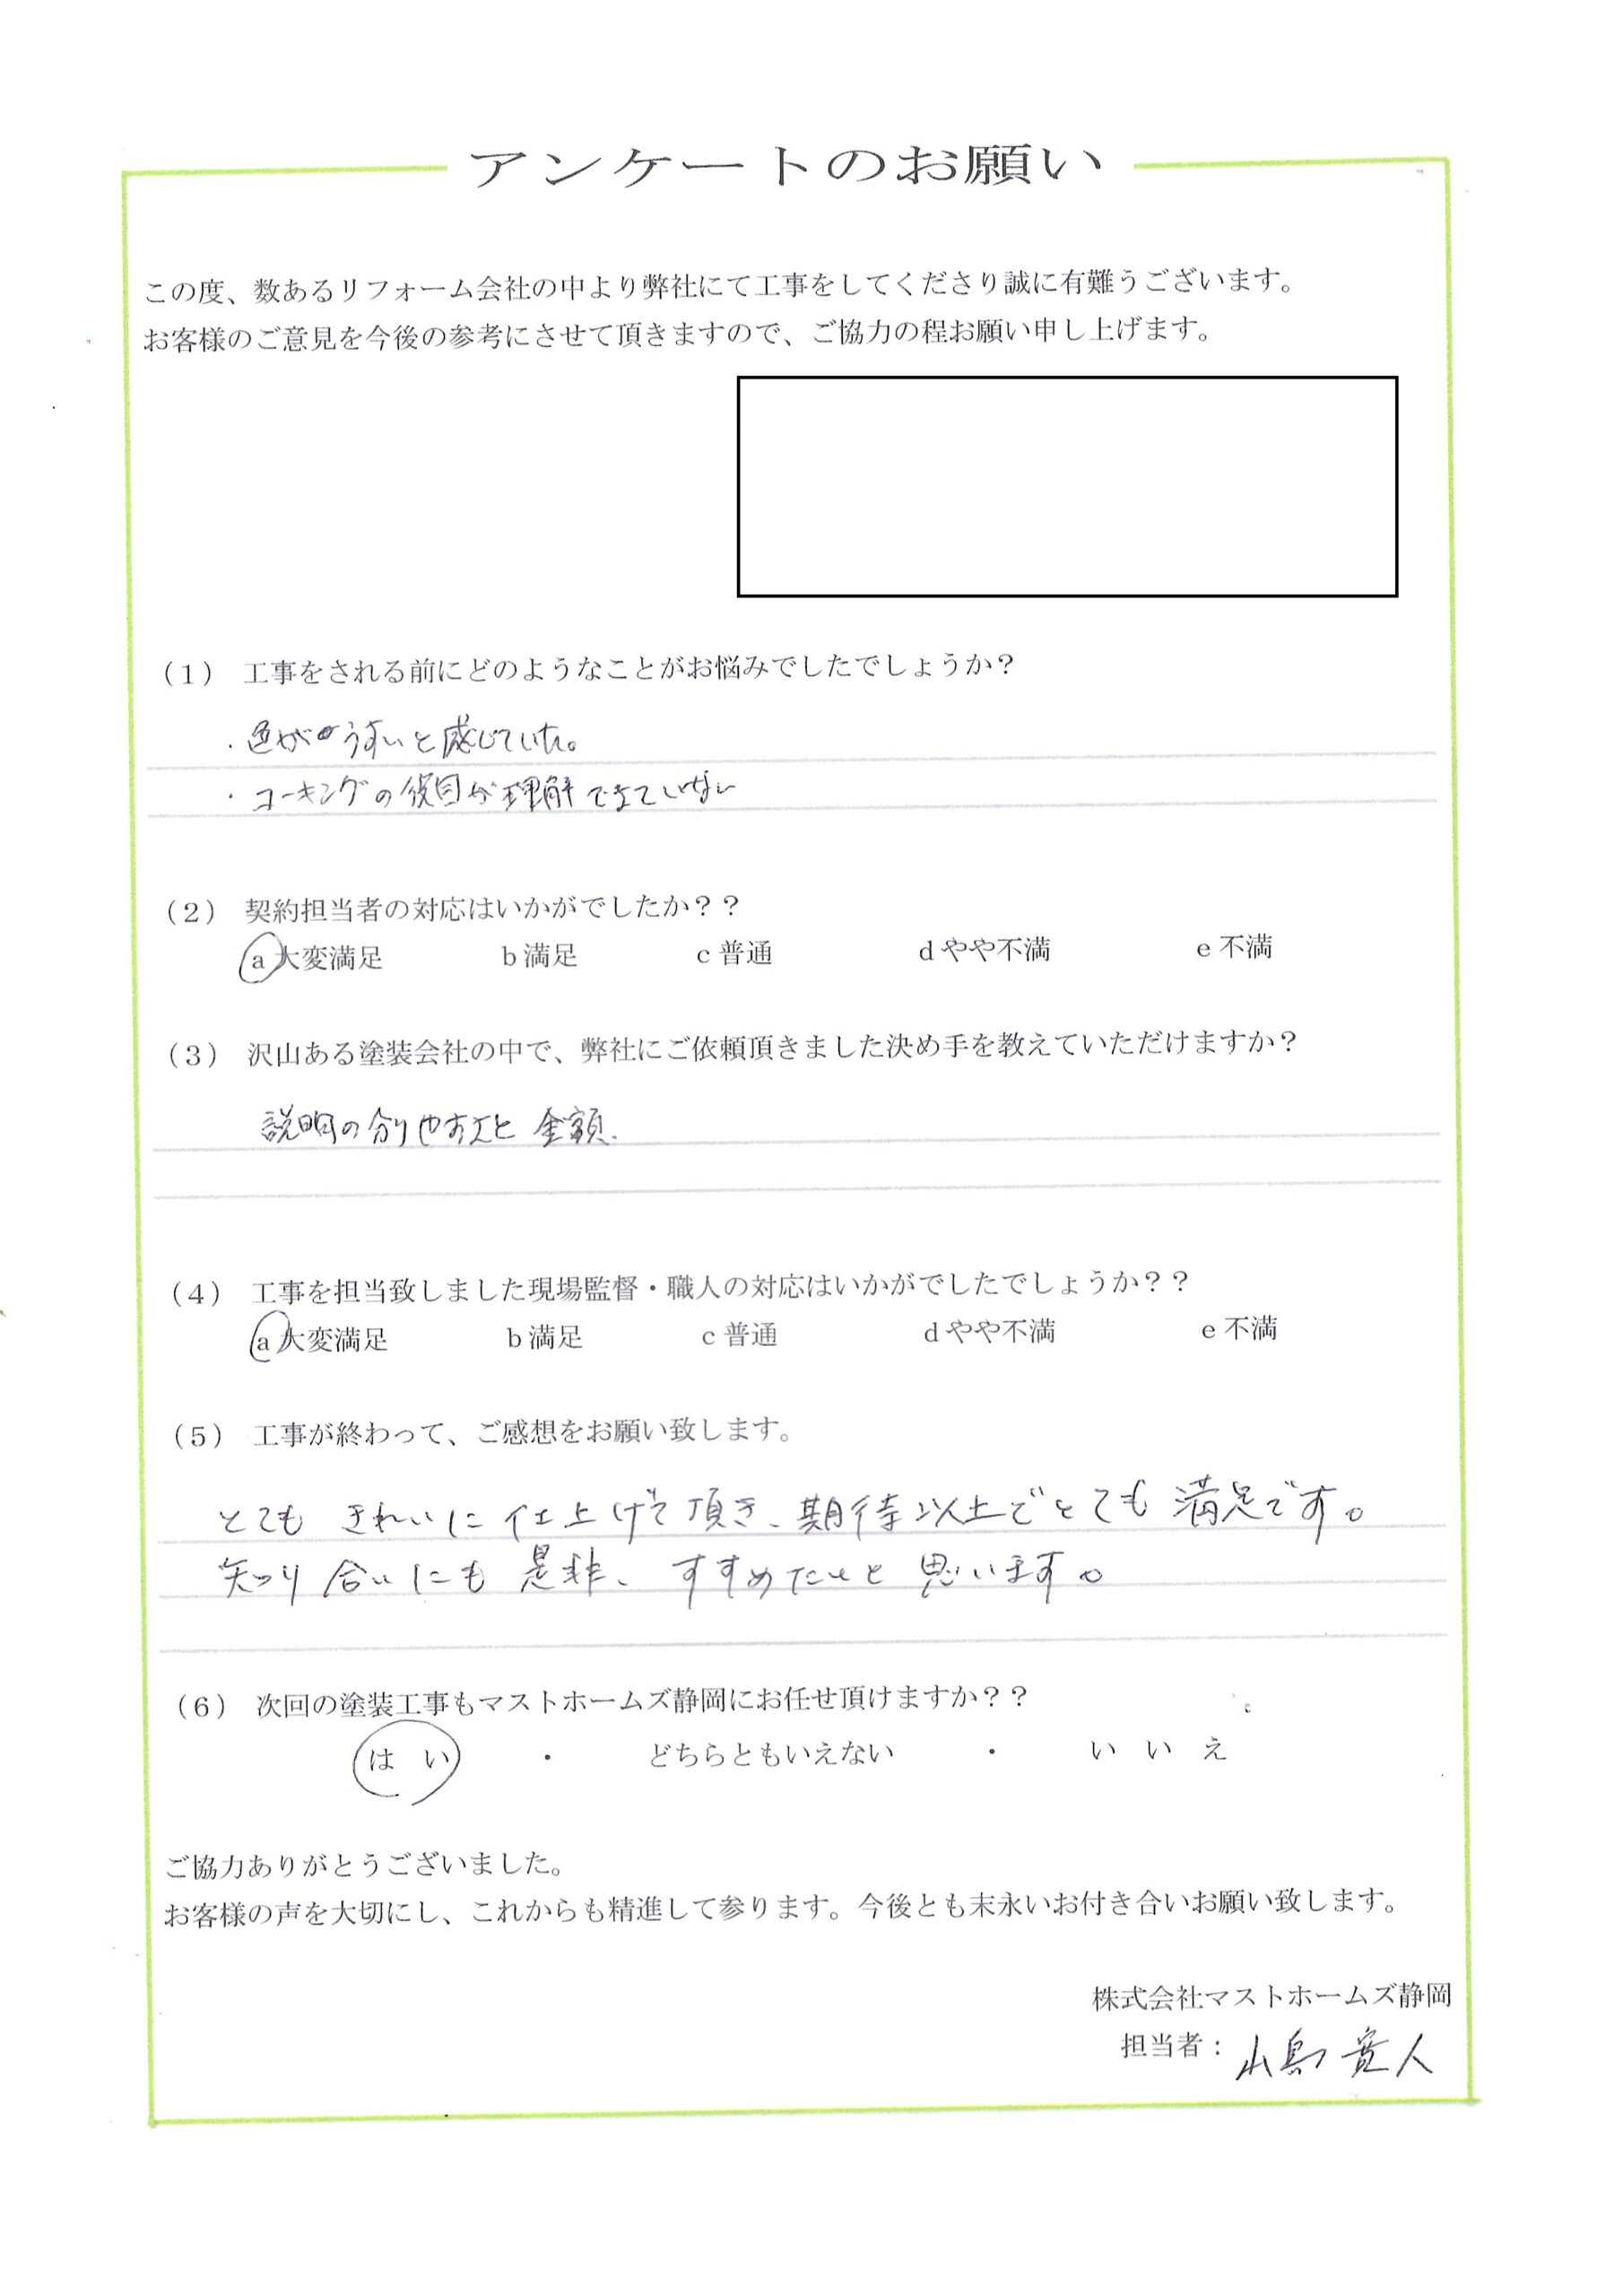 アンケートのお願い
この度、数あるリフォーム会社の中より弊社にて工事をしてくださり誠に有難うございます。
お客様のご意見を今後の参考にさせて頂きますので、ご協力の程お願い申し上げます。
(1) 工事をされる前にどのようなことがお悩みでしたでしょうか？
・色がうすいと感じていた。
・コーキングの役目が理解できていない
(2) 契約担当者の対応はいかがでしたか？？
a大変満足 b満足 c普通 dやや不満 e不満
(3) 沢山ある塗装会社の中で、弊社にご依頼頂きました決め手を教えていただけますか？
説明の分りやすさと 金額.
(4) 工事を担当致しました現場監督・職人の対応はいかがでしたでしょうか？？
a大変満足 b満足 c普通 dやや不満 e不満
(5) 工事が終わって、ご感想をお願い致します。
とても きれいに 仕上げて 頂き、期待以上でとても 満足です。
知り合いにも 是非、すすめたいと 思います。
(6) 次回の塗装工事もマストホームズ静岡にお任せ頂けますか？？
はい ・ どちらともいえない ・ いいえ
ご協力ありがとうございました。
お客様の声を大切にし、これからも精進して参ります。今後とも末永いお付き合いお願い致します。
株式会社マストホームズ静岡
担当者：山島 寛人